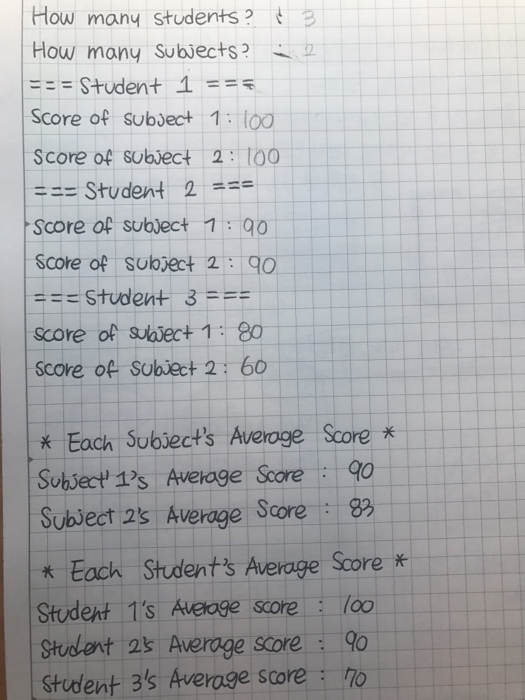 How many students? : 3
How many subjects? : 2
=== Student 1 ===
Score of subject 1: 100
Score of subject 2: 100
=== Student 2 ===
Score of subject 1: 90
Score of subject 2: 90
=== Student 3 ===
Score of subject 1: 80
Score of subject 2: 60
* Each Subject's Average Score *
Subject 1's Average Score : 90
Subject 2's Average Score : 83
* Each Student's Average Score *
Student 1's Average score : 100
Student 2's Average score : 90
Student 3's Average score : 70